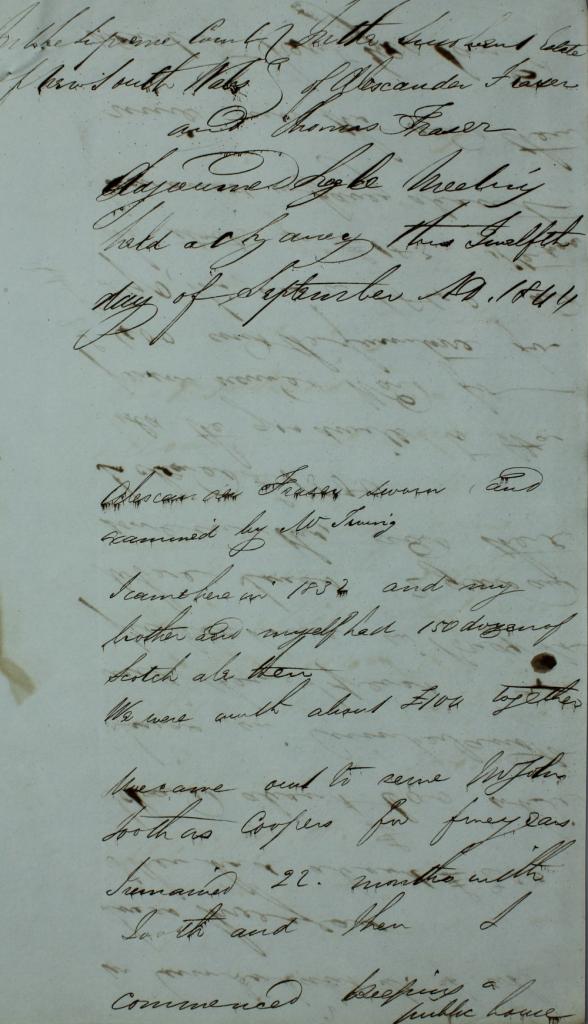 In the Supreme Court } In the Insolvent Estate
of New South Wales } of Alexander Fraser
and Thomas Fraser
Adjourned Single Meeting
held at Sydney this Twelfth
day of September AD. 1844
Alexander Fraser sworn and
examined by Mr Irving
I came here in 1832 and my
brother and myself had 150 dozen of
Scotch ale then
We were worth about £104 together
We came out to serve Mr John
Tooth as Coopers for five years.
I remained 22. months with
Tooth and then I
commenced keeping a
public house